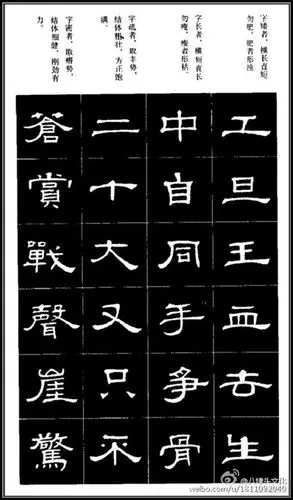 字矮者，横长直短
勿肥，肥者形浊
字长者，横短直长
勿瘦，瘦者形枯
字疏者，取丰势，
结体粗壮，方正饱
满。
字密者，取瘠势，
结体细健，刚劲有
力。
工旦王血去生
中自同手爭骨
二十大又只不
蒼賞戰聲崖驚
weibo.com/u/1811092040